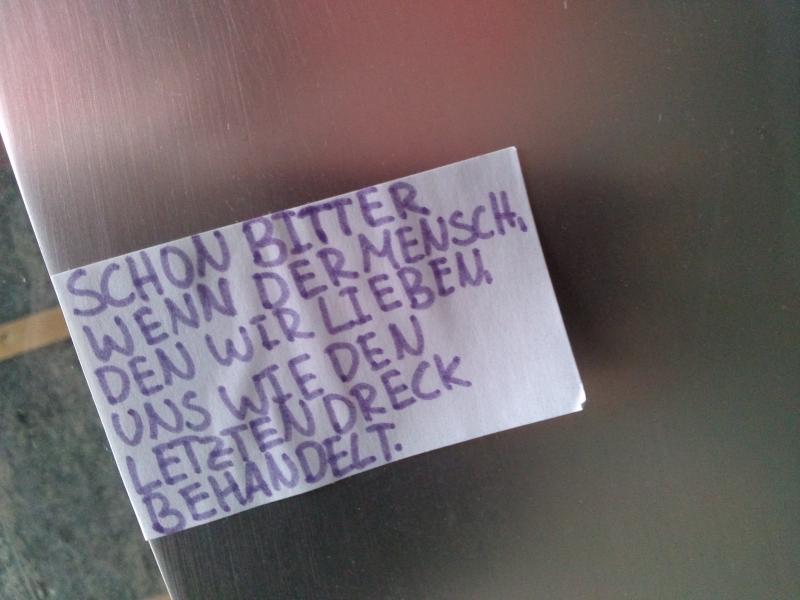 SCHON BITTER
WENN DER MENSCH,
DEN WIR LIEBEN,
UNS WIE DEN
LETZTEN DRECK
BEHANDELT.